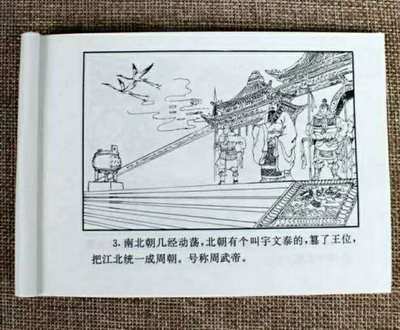 3. 南北朝几经动荡，北朝有个叫宇文泰的，篡了王位，
把江北统一成周朝。号称周武帝。